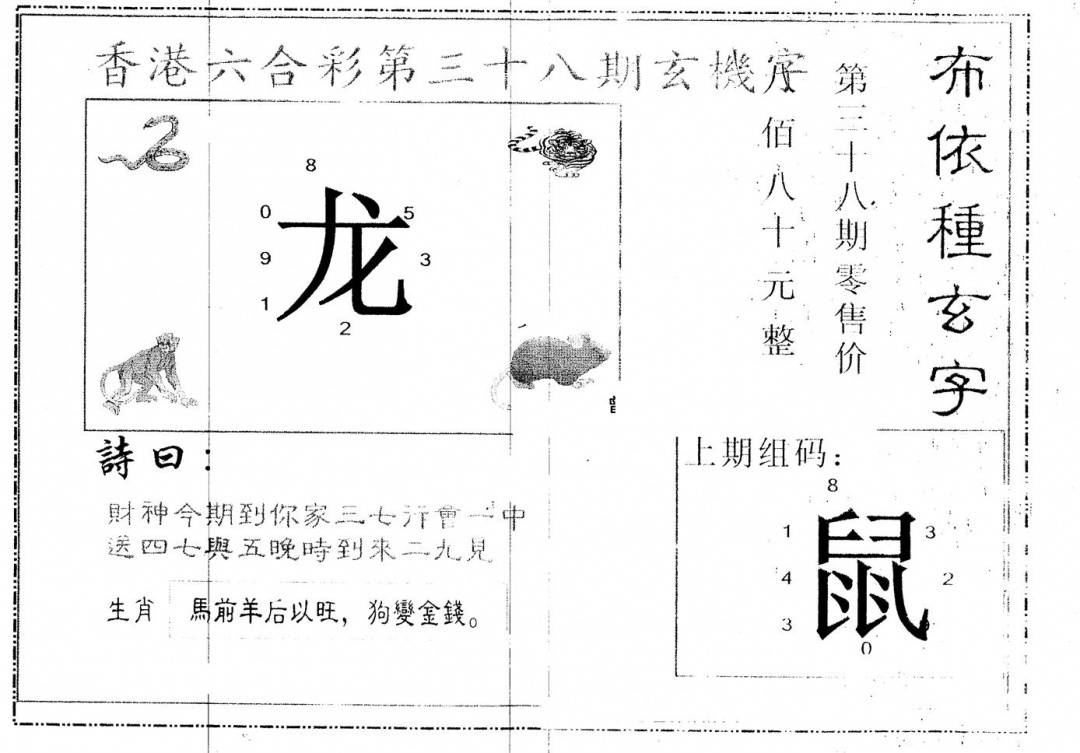 香港六合彩第三十八期玄機字
布依種玄字
第三十八期零售价
八佰八十元整
8
0
5
9
龙
3
1
2
詩曰：
財神今期到你家三七行會一中
送四七與五晚時到來二九見
生肖 馬前羊后以旺，狗變金錢。
上期组码：
8
1
3
4
鼠
2
3
9
0